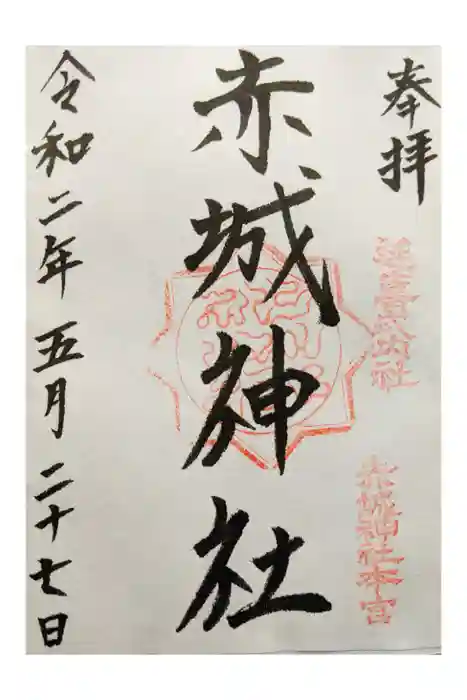 奉拝
赤城神社本宮
赤城神社
令和二年五月二十七日